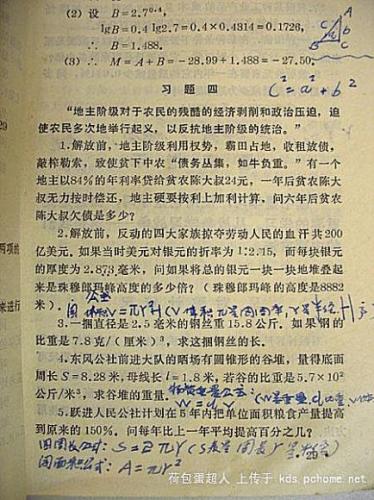 (2) 设 B=2.7^0.4,
lgB=0.4 lg2.7=0.4×0.4314=0.1726,
∴ B=1.488.
(3) ∴ M=A+B=-28.99+1.488=-27.50.
A
C
B C
c²=a²+b²
习题四
“地主阶级对于农民的残酷的经济剥削和政治压迫，迫
使农民多次地举行起义，以反抗地主阶级的统治。”
1.解放前，地主阶级利用权势，霸田占地，收租放债，
敲榨勒索，致使贫下中农“债务丛集，如牛负重。”有一个
地主以84%的年利率贷给贫农陈大叔24元，一年后贫农陈大
叔无力按时偿还，地主硬要按利上加利计算，问六年后贫农
陈大叔欠债是多少？
2.解放前，反动的四大家族掠夺劳动人民的血汗共200
亿美元。如果当时美元对银元的折率为1:2.15，而每块银元
的厚度为2.873毫米，问如果将总的银元一块一块地堆叠起
来是珠穆郎玛峰高度的多少倍？（珠穆郎玛峰的高度是8882
米）.
3.一捆直径是2.5毫米的钢丝重15.8公斤，如果钢的
比重是7.8克/(厘米)³，求这捆钢丝的长。
4.东风公社前进大队的晒场有圆锥形的谷堆，量得底面
周长S=8.28米，母线长l=1.8米，若谷的比重是5.7×10²
公斤/米³，求谷堆的重量。
5.跃进人民公社计划在5年内把单位面积粮食产量提高
到原来的150%，问每年比上一年平均提高百分之几？
S=2πY
A=πr²
荷包蛋超人 上传于 kds.pchome.net